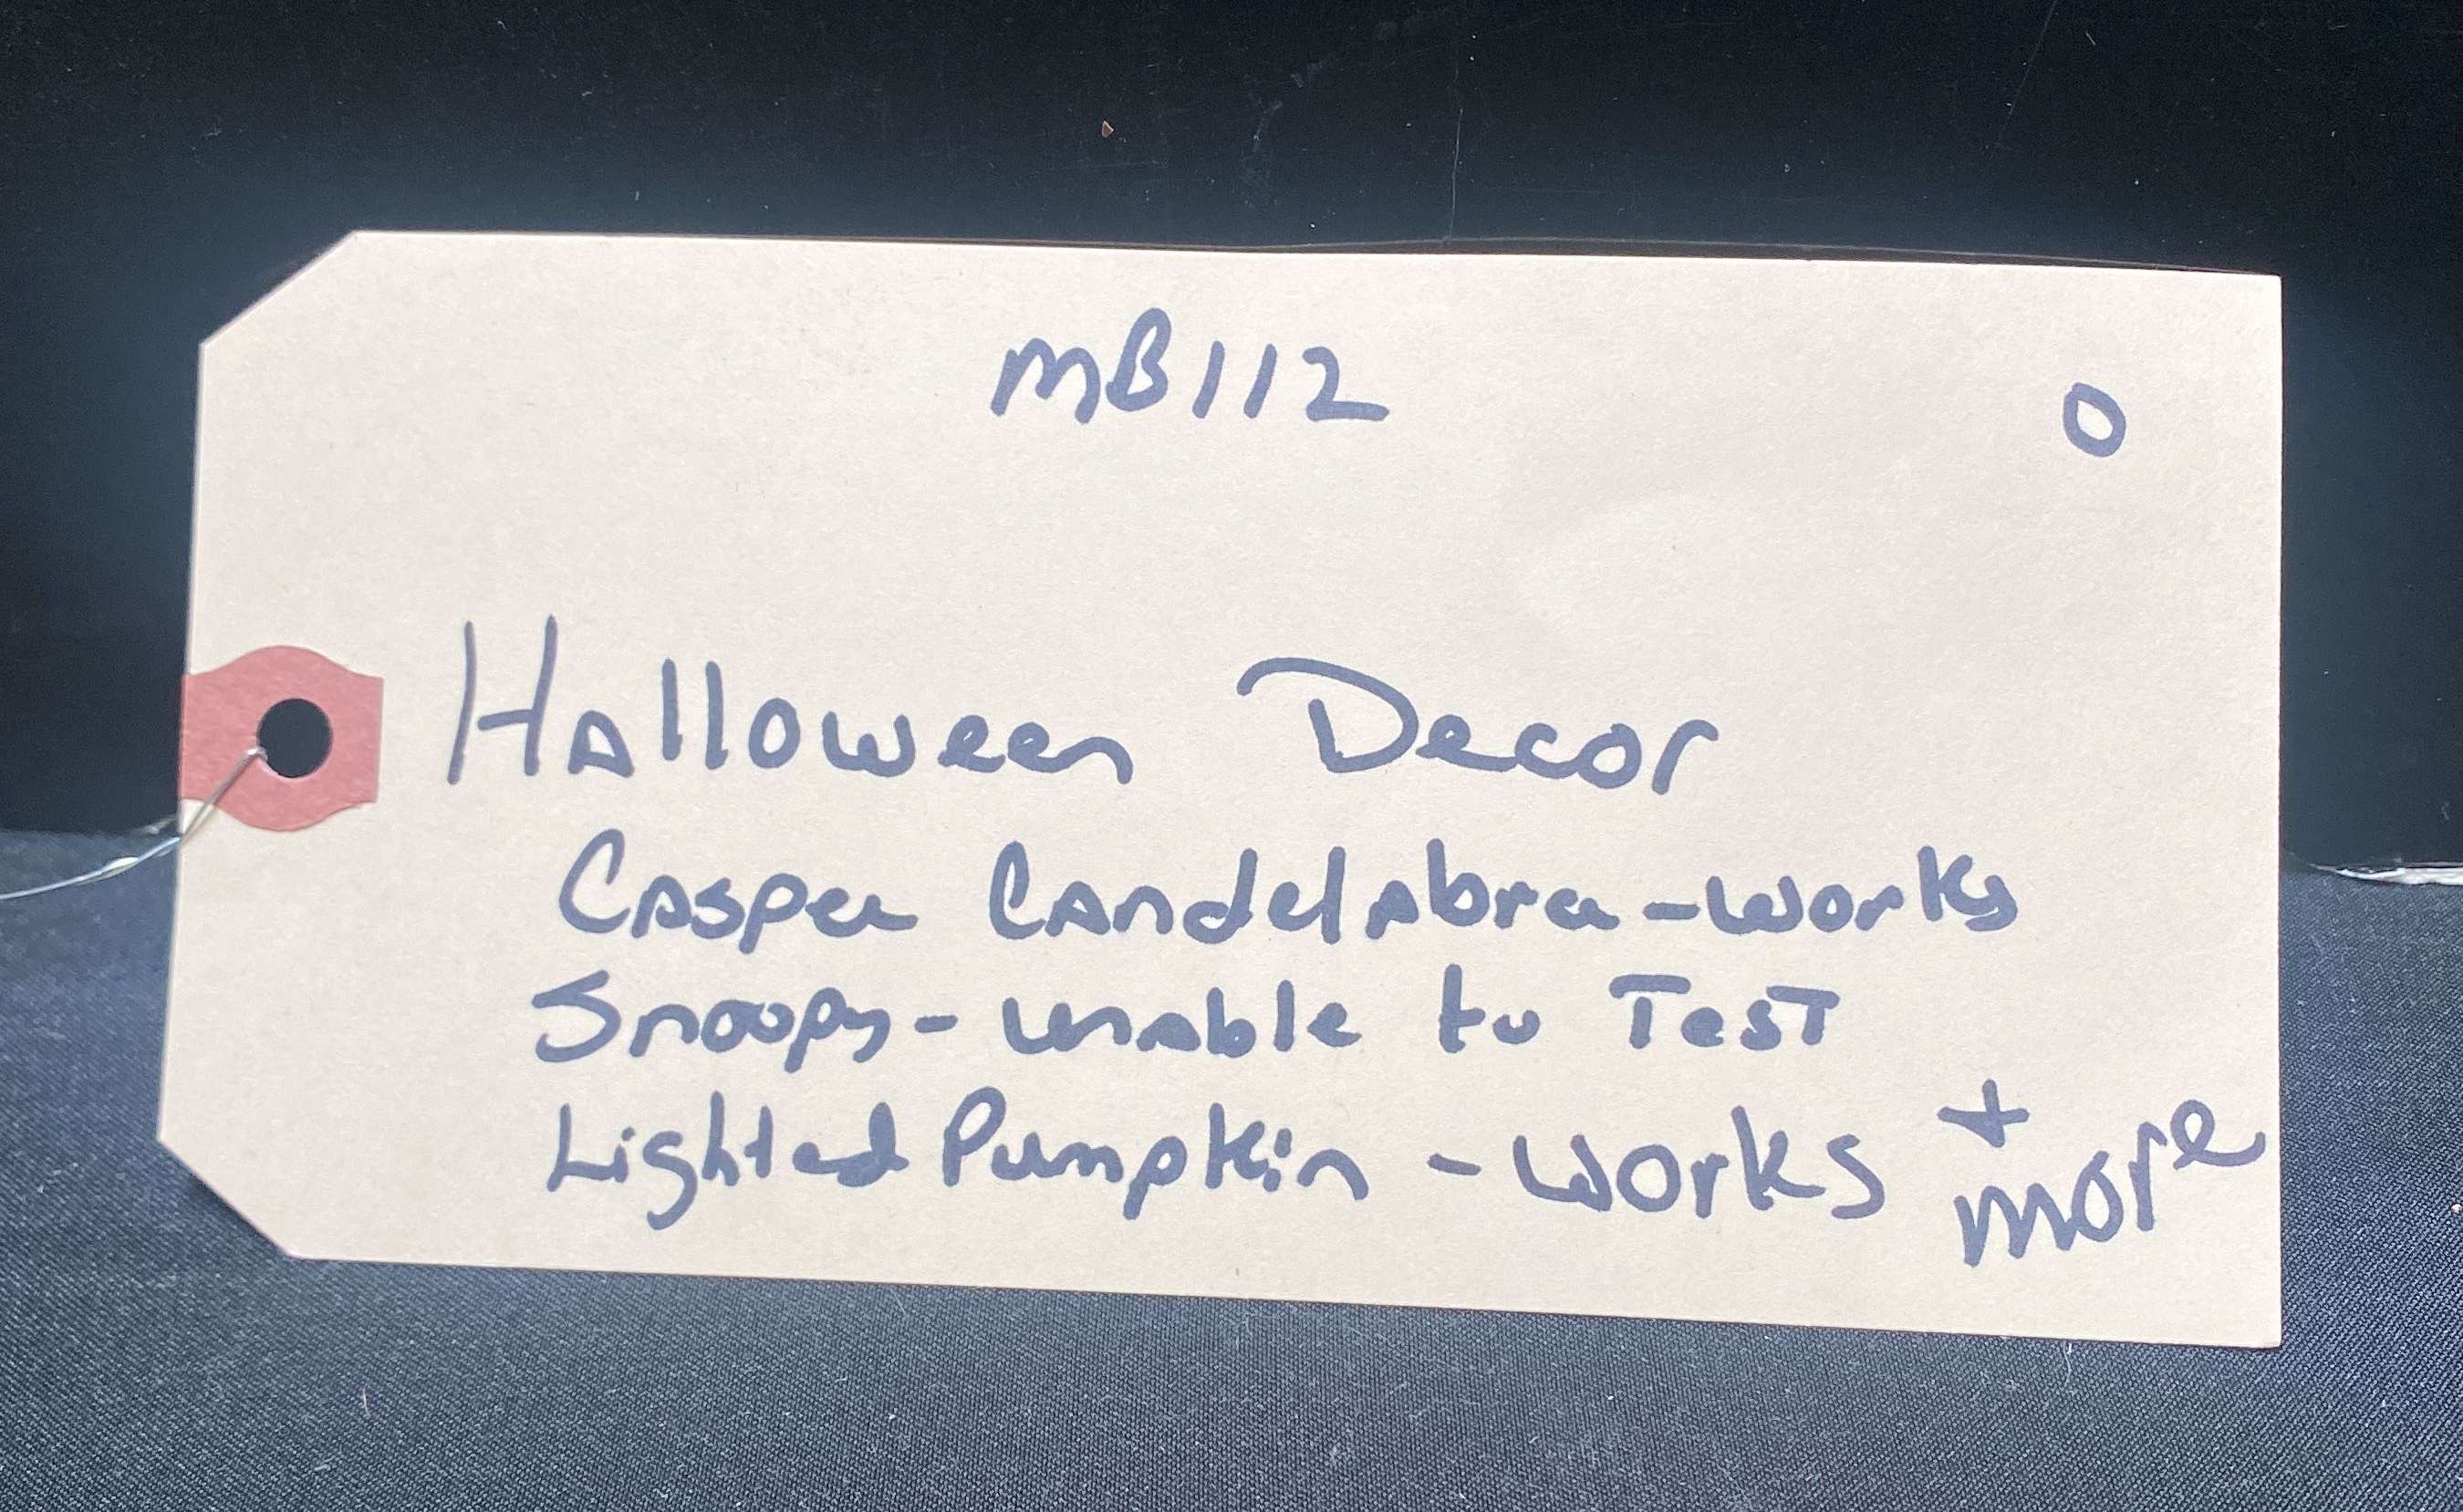 MB112 0
Halloween Decor
Casper Candelabra - works
Snoopy - unable to Test
Lighted Pumpkin - works +
more